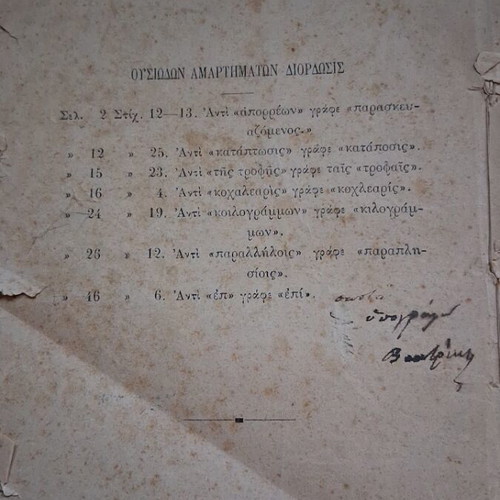 ΟΥΣΙΩΔΩΝ ΑΜΑΡΤΗΜΑΤΩΝ ΔΙΟΡΔΩΣΙΣ
Σελ. 2 Στίχ. 12—13. Ἀντὶ «ἀπορρέων» γράφε «παρασκευ-
αζόμενος.»
» 12 » 25. Ἀντὶ «κατάπτωσις» γράφε «κατάποσις».
» 15 » 23. Ἀντὶ «τῆς τροφῆς» γράφε ταῖς «τροφαῖς».
» 16 » 4. Ἀντὶ «κοχαλεαρὶς» γράφε «κοχλεαρίς».
» 24 » 19. Ἀντὶ «κοιλογράμμων» γράφε «κιλογράμ-
μων».
» 26 » 12. Ἀντὶ «παραλλήλοις» γράφε «παραπλη-
σίοις».
» 46 » 6. Ἀντὶ «ἐπ» γράφε «ἐπί».